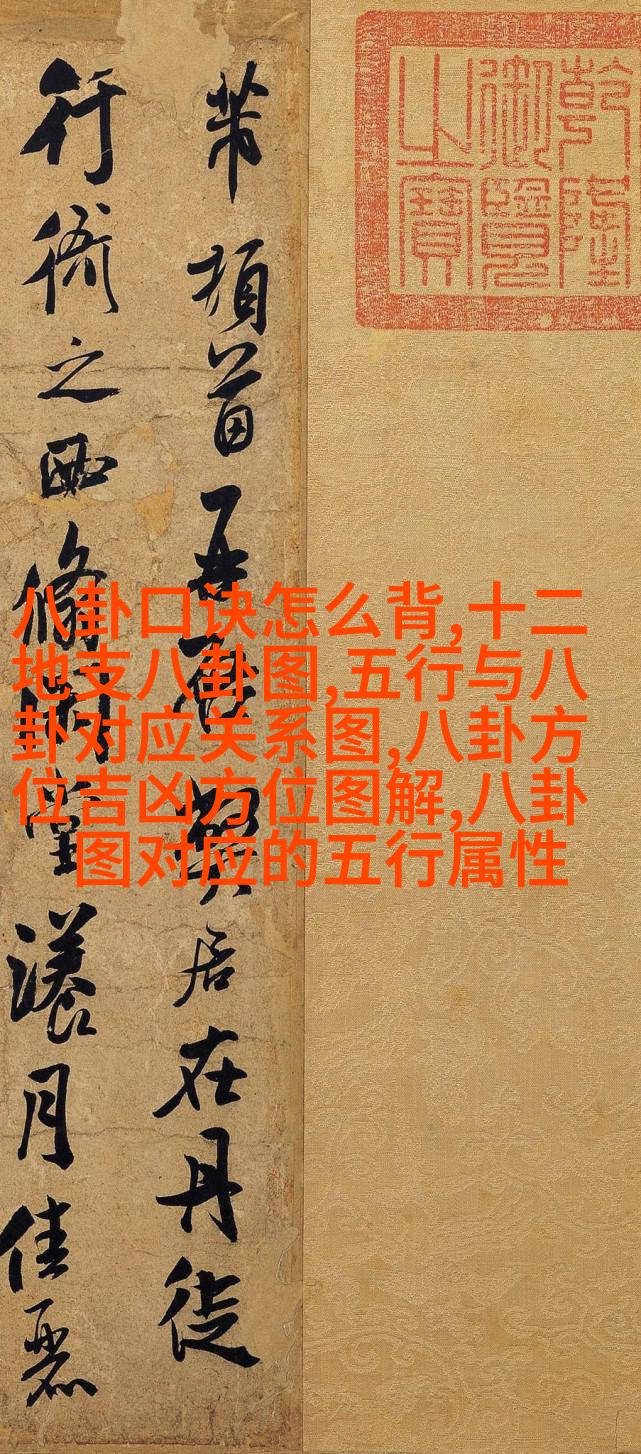 乾隆
御覽
之寶
芾頓首再啓弊居在丹徒
行衙之西翛閑堂漾月佳麗
八卦口诀怎么背,十二
地支八卦图,五行与八
卦对应关系图,八卦方
位吉凶方位图解,八卦
图对应的五行属性